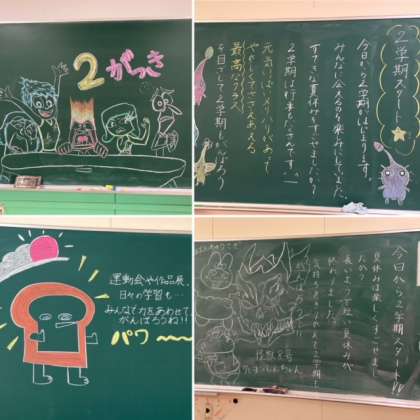 2がっき
2学期スタート
今日から2学期がはじまります。
みんなに会えるのを楽しみにしていました。
すてきな夏休みをすごせましたか?
2学期は行事もたくさんです!
元気いっぱいメリハリがあって
やさしくてささえあえる。
最高なクラス
を目ざして2学期もがんばろう
運動会や作品展、
日々の学習も…
みんなで力をあわせて、
がんばろうね!!
パワ〜
今日から2学期スタート!!
夏休みは楽しくすごせまし
たか?
長いようで短い夏休みが
終わりました。
2学期も